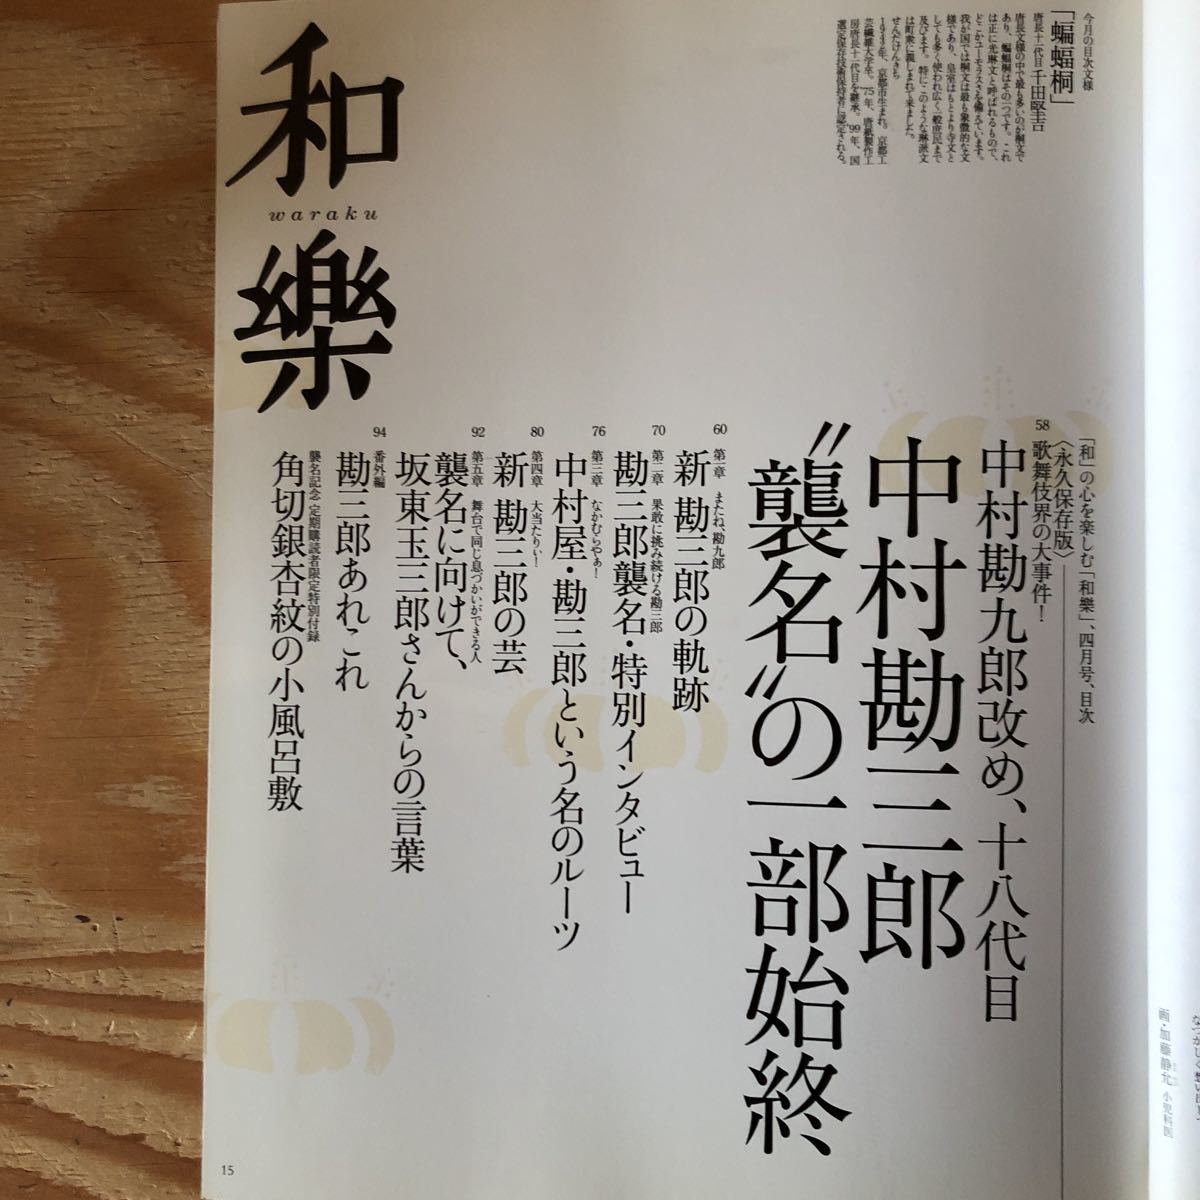 今月の目次文様
「蝙蝠桐」
唐長十一代目 千田堅吉
唐長文様の中で最も多いのが桐文で
あり、蝙蝠桐はその一つです。これ
は正に光琳文と呼ばれるもので、
どこかユーモラスさを備えています。
我が国では桐文は最も象徴的な文
様であり、皇室はもとより寺文と
しても多く使われ広く一般庶民まで
及びます。特にこのような琳派文
は町衆に親しまれて来ました。
せんだけんきち
1942年、京都市生まれ。京都工
芸繊維大学卒。'75年、唐紙製作工
房唐長十一代目を継承。'99年、国
選定保存技術保持者に認定される。
和樂
waraku
「和」の心を楽しむ「和樂」、四月号、目次
58
〈永久保存版〉
歌舞伎界の大事件!
中村勘九郎改め、十八代目
中村勘三郎
〝襲名〟の一部始終
60
第一章 またね、勘九郎
新 勘三郎の軌跡
70
第二章 果敢に挑み続ける勘三郎
勘三郎襲名・特別インタビュー
76
第三章 なかむらやぁ!
中村屋・勘三郎という名のルーツ
80
第四章 大当たりぃ!
新 勘三郎の芸
92
第五章 舞台で同じ息づかいができる人
襲名に向けて、
坂東玉三郎さんからの言葉
94
番外編
勘三郎あれこれ
襲名記念 定期購読者限定特別付録
角切銀杏紋の小風呂敷
15
画・加藤静允 小児科医